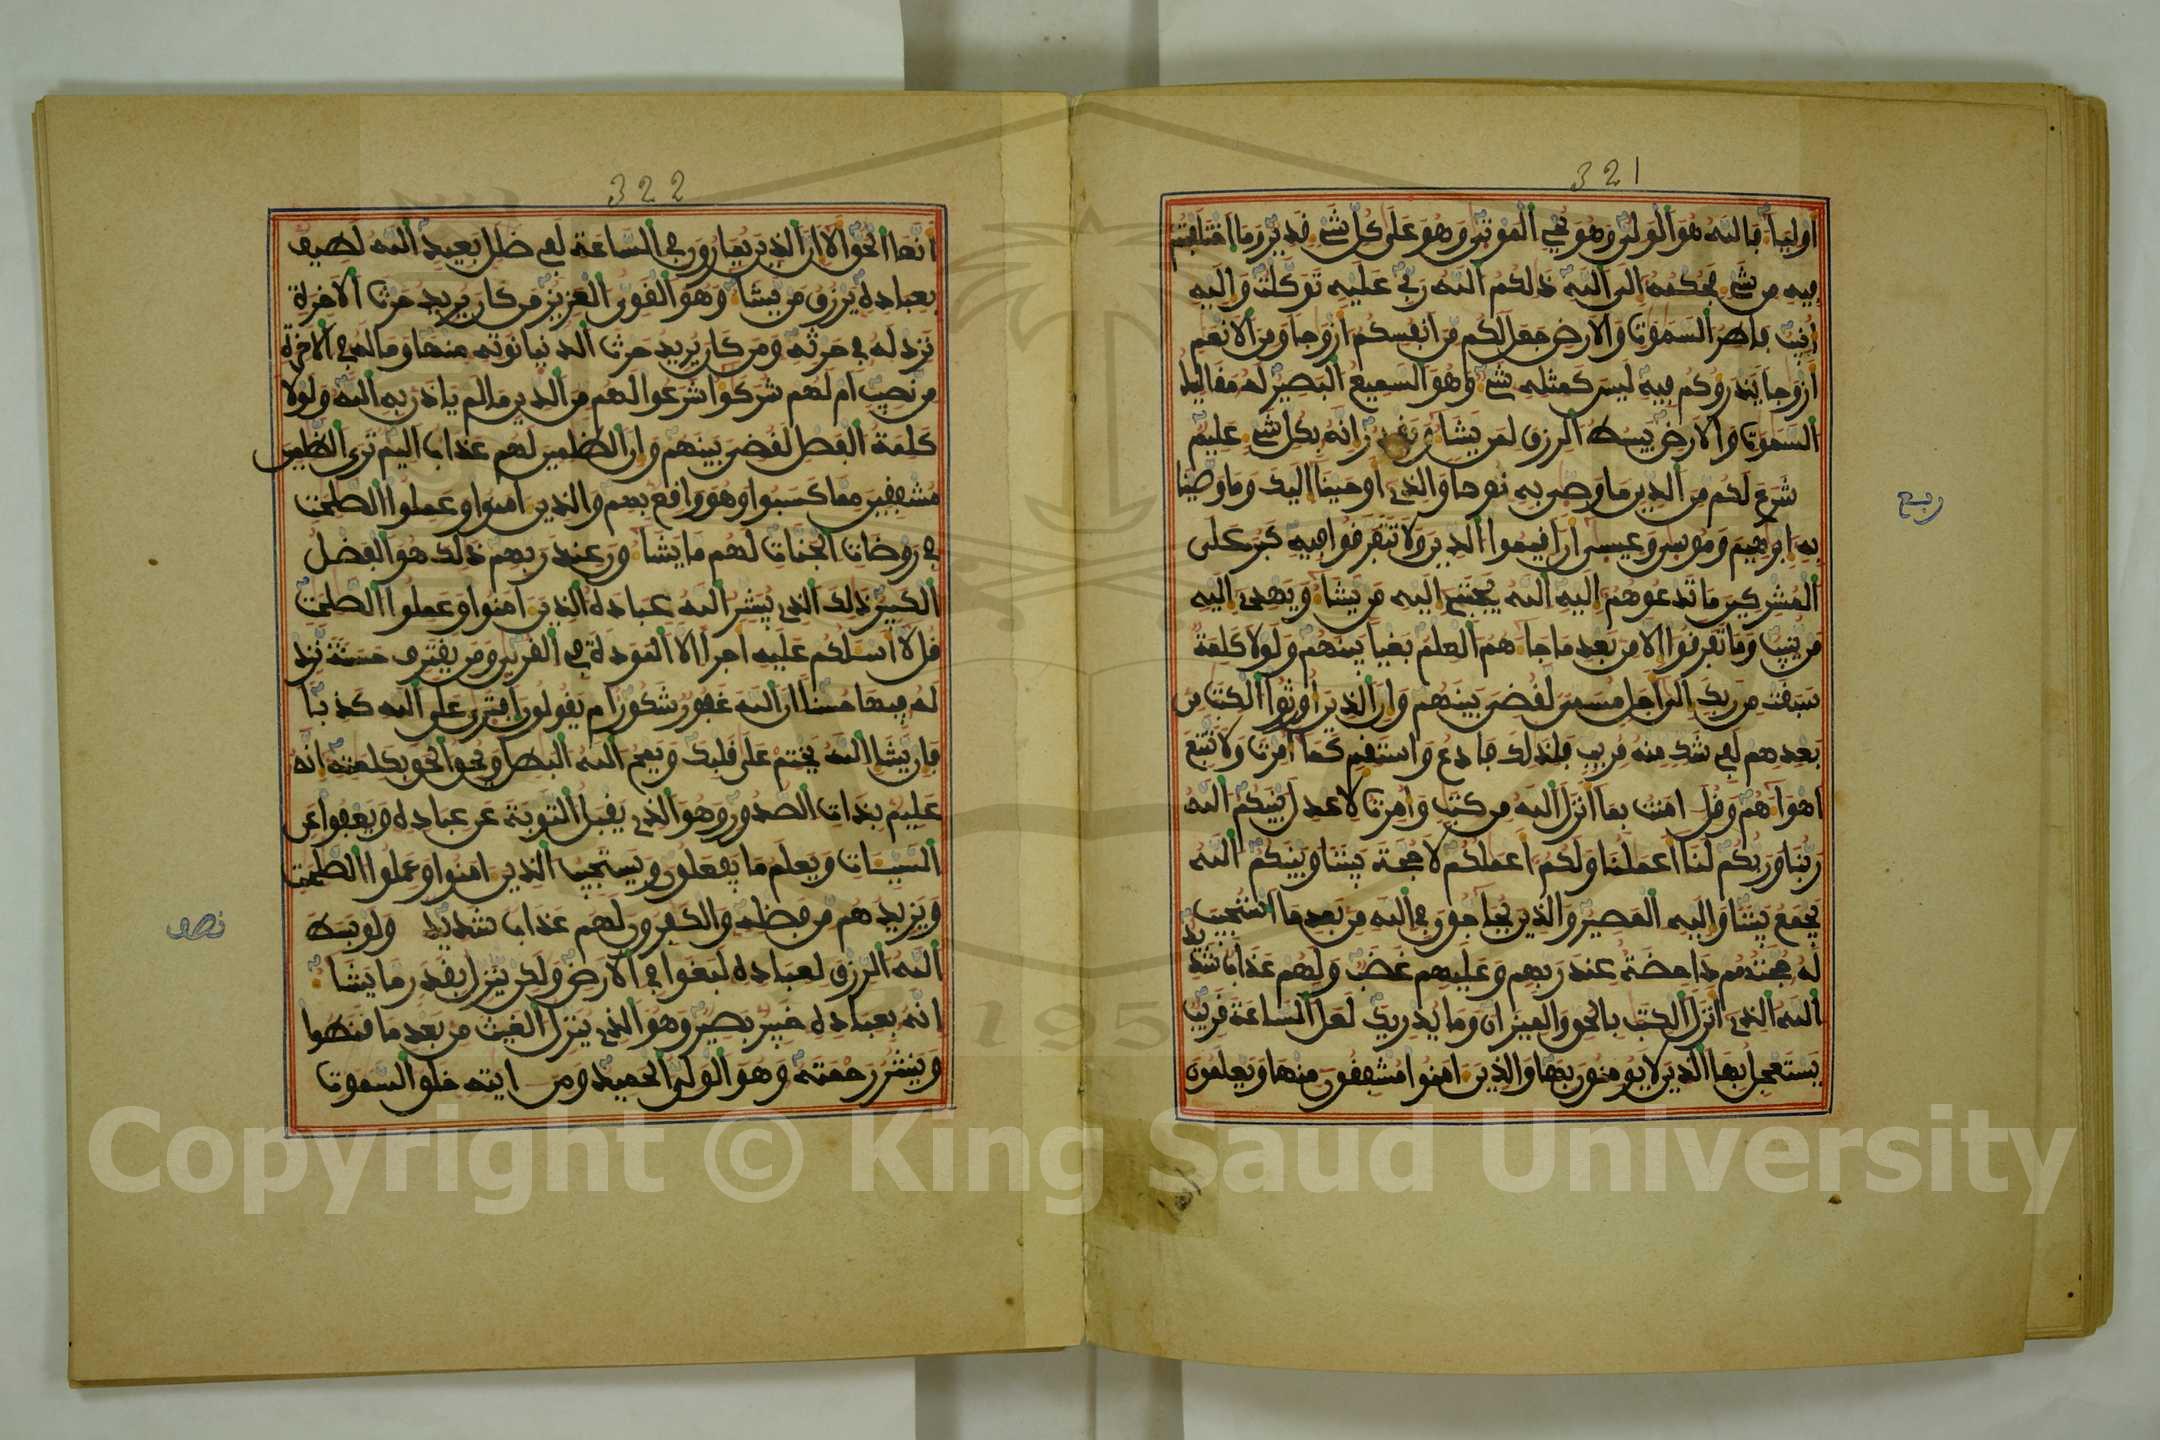 321
اولياء فالله هو الولي وهو يحي الموتى وهو على كل شيء قدير وما اختلفتم
فيه من شيء فحكمه الى الله ذلكم الله ربي عليه توكلت واليه
انيب فاطر السموت والارض جعل لكم من انفسكم ازوجا ومن الانعم
ازوجا يذروكم فيه ليس كمثله شيء وهو السميع البصير له مقاليد
السموت والارض يبسط الرزق لمن يشاء ويقدر انه بكل شيء عليم
شرع لكم من الدين ما وصى به نوحا والذي اوحينا اليك وما وصينا
به ابرهيم وموسى وعيسى ان اقيموا الدين ولا تتفرقوا فيه كبر على
المشركين ما تدعوهم اليه الله يجتبي اليه من يشاء ويهدي اليه
من ينيب وما تفرقوا الا من بعد ما جاءهم العلم بغيا بينهم ولولا كلمة
سبقت من ربك الى اجل مسمى لقضي بينهم وان الذين اورثوا الكتب من
بعدهم لفي شك منه مريب فلذلك فادع واستقم كما امرت ولا تتبع
اهواءهم وقل امنت بما انزل الله من كتب وامرت لاعدل بينكم الله
ربنا وربكم لنا اعملنا ولكم اعملكم لا حجة بيننا وبينكم الله
يجمع بيننا واليه المصير والذين يحاجون في الله من بعد ما استجيب
له حجتهم داحضة عند ربهم وعليهم غضب ولهم عذاب شديد
الله الذي انزل الكتب بالحق والميزان وما يدريك لعل الساعة قريب
يستعجل بها الذين لا يومنون بها والذين امنوا مشفقون منها ويعلمون
ربع
322
انها الحق الا ان الذين يمارون في الساعة لفي ضلل بعيد الله لطيف
بعباده يرزق من يشاء وهو القوي العزيز من كان يريد حرث الاخرة
نزد له في حرثه ومن كان يريد حرث الدنيا نوته منها وما له في الاخرة
من نصيب ام لهم شركوا شرعوا لهم من الدين ما لم ياذن به الله ولولا
كلمة الفصل لقضي بينهم وان الظلمين لهم عذاب اليم ترى الظلمين
مشفقين مما كسبوا وهو واقع بهم والذين امنوا وعملوا الصلحت
في روضات الجنات لهم ما يشاءون عند ربهم ذلك هو الفضل
الكبير ذلك الذي يبشر الله عباده الذين امنوا وعملوا الصلحت
قل لا اسلكم عليه اجرا الا المودة في القربى ومن يقترف حسنة نزد
له فيها حسنا ان الله غفور شكور ام يقولون افترى على الله كذبا
فان يشا الله يختم على قلبك ويمح الله البطل ويحق الحق بكلمته انه
عليم بذات الصدور وهو الذي يقبل التوبة عن عباده ويعفوا عن
السيئات ويعلم ما يفعلون ويستجيب الذين امنوا وعملوا الصلحت
ويزيدهم من فضله والكفرون لهم عذاب شديد ولو بسط
الله الرزق لعباده لبغوا في الارض ولكن ينزل بقدر ما يشاء
انه بعباده خبير بصير وهو الذي ينزل الغيث من بعد ما قنطوا
وينشر رحمته وهو الولي الحميد ومن ايته خلق السموت
نصف
195
Copyright © King Saud University